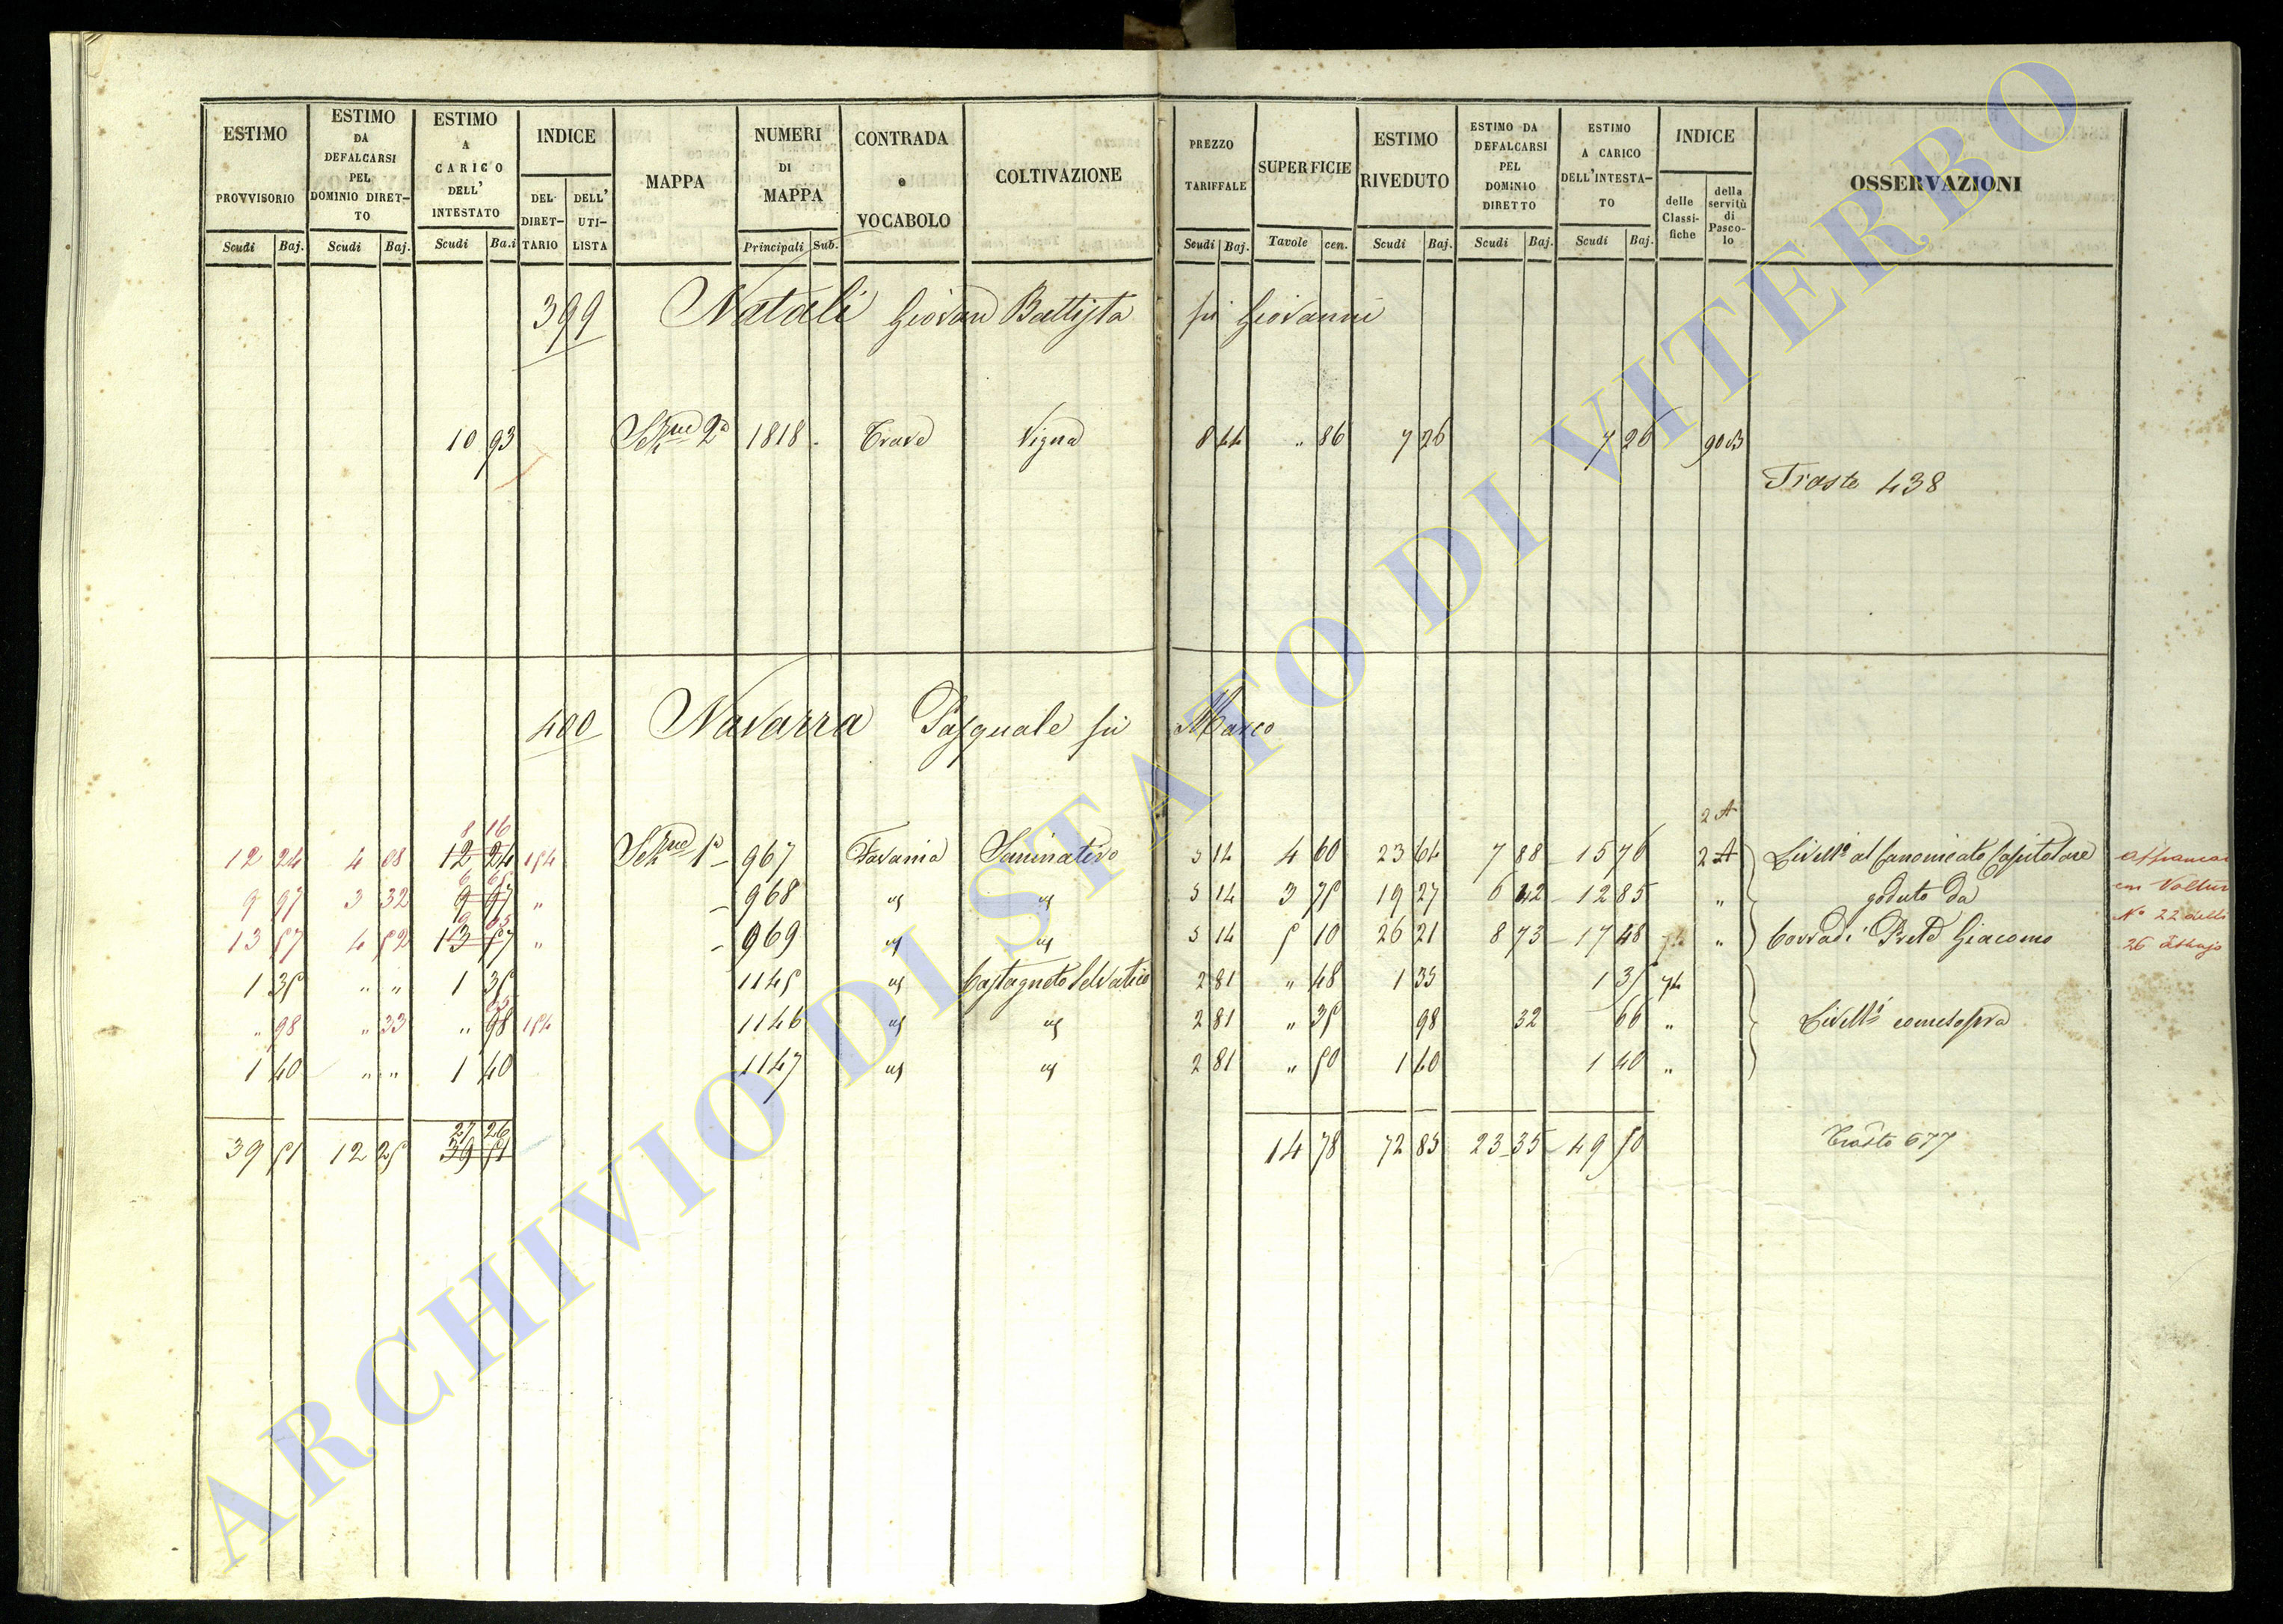 ESTIMO PROVVISORIO Scudi Baj.
ESTIMO DA DEFALCARSI PEL DOMINIO DIRET-TO Scudi Baj.
ESTIMO A CARICO DELL' INTESTATO Scudi Ba.i
INDICE DEL DIRET-TARIO DELL' UTI-LISTA
MAPPA
NUMERI DI MAPPA Principali Sub.
CONTRADA e VOCABOLO
COLTIVAZIONE
PREZZO TARIFFALE Scudi Baj.
SUPERFICIE Tavole cen.
ESTIMO RIVEDUTO Scudi Baj.
ESTIMO DA DEFALCARSI PEL DOMINIO DIRETTO Scudi Baj.
ESTIMO A CARICO DELL'INTESTA-TO Scudi Baj.
INDICE delle Classi-fiche della servitù di Pasco-lo
OSSERVAZIONI
399 Natali Giovan Battista fu Giovanni
10 93 Sez.ne 2a 1818 Trave Vigna 8 44 " 86 7 26 7 26 90
Trasto 438
400 Navarra Pasquale fu Marco
8 16 2 A
12 24 4 08 12 24 154 Sez.ne 1a 967 Favania Seminativo 5 14 4 60 23 64 7 88 15 76 2 A Livell.o al Canonicato Capitolare
6 65
9 97 3 32 9 97 " 968 " " 5 14 3 75 19 27 6 42 12 85 " goduto da
9 05
13 57 4 52 13 57 " 969 " " 5 14 5 10 26 21 8 73 17 48 " Corradi Prete Giacomo
1 35 " " 1 35 1145 " Castagneto Selvatico 2 81 " 48 1 35 1 35 74
65
" 98 " 33 " 98 154 1146 " " 2 81 " 35 98 32 66 " Livell.o come sopra
1 40 " " 1 40 1147 " " 2 81 " 50 1 40 1 40 "
27 26
39 51 12 25 39 51 14 78 72 85 23 35 49 50 Trasto 677
N° 22
26
ARCHIVIO DI STATO DI VITERBO